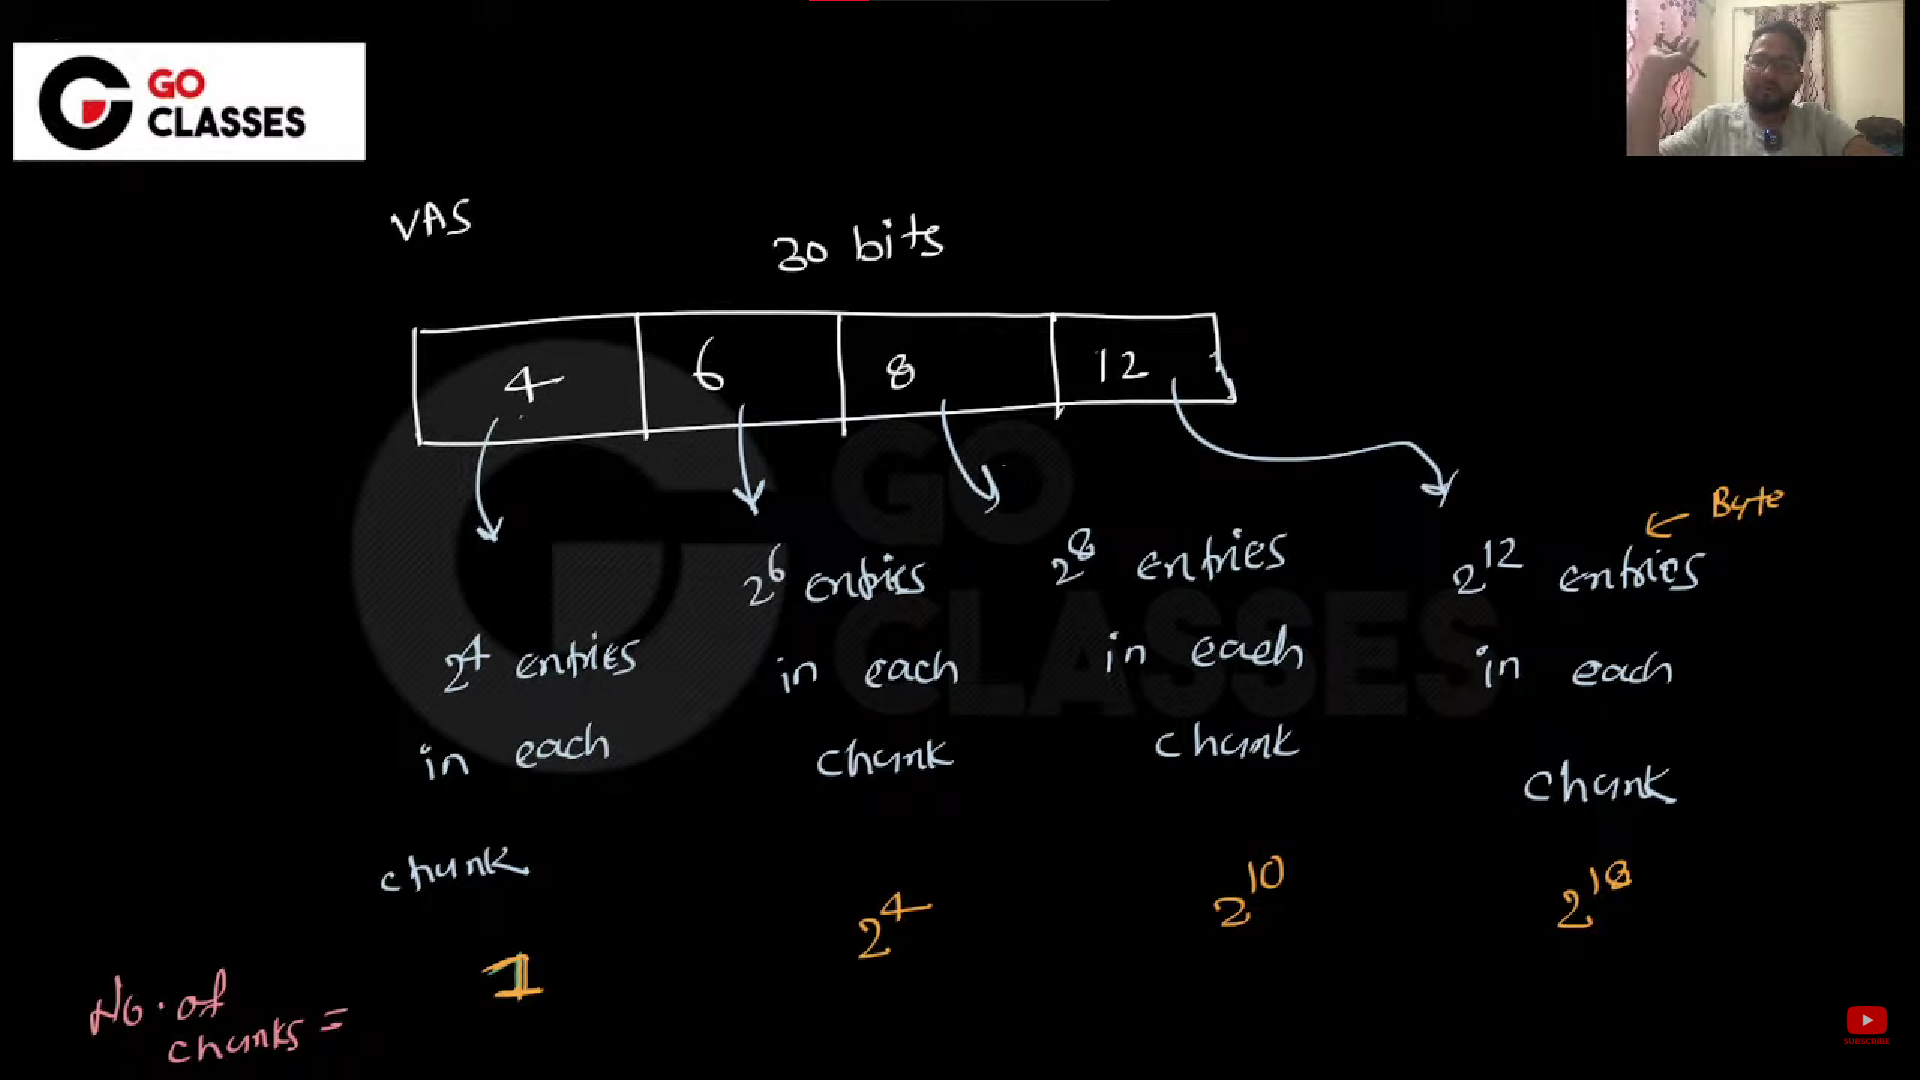 GO
CLASSES
VAS
30 bits
4 6 8 12
Byte
2^4 entries in each chunk
2^6 entries in each chunk
2^8 entries in each chunk
2^12 entries in each chunk
No. of chunks = 1 2^4 2^10 2^18
GO
CLASSES
SUBSCRIBE